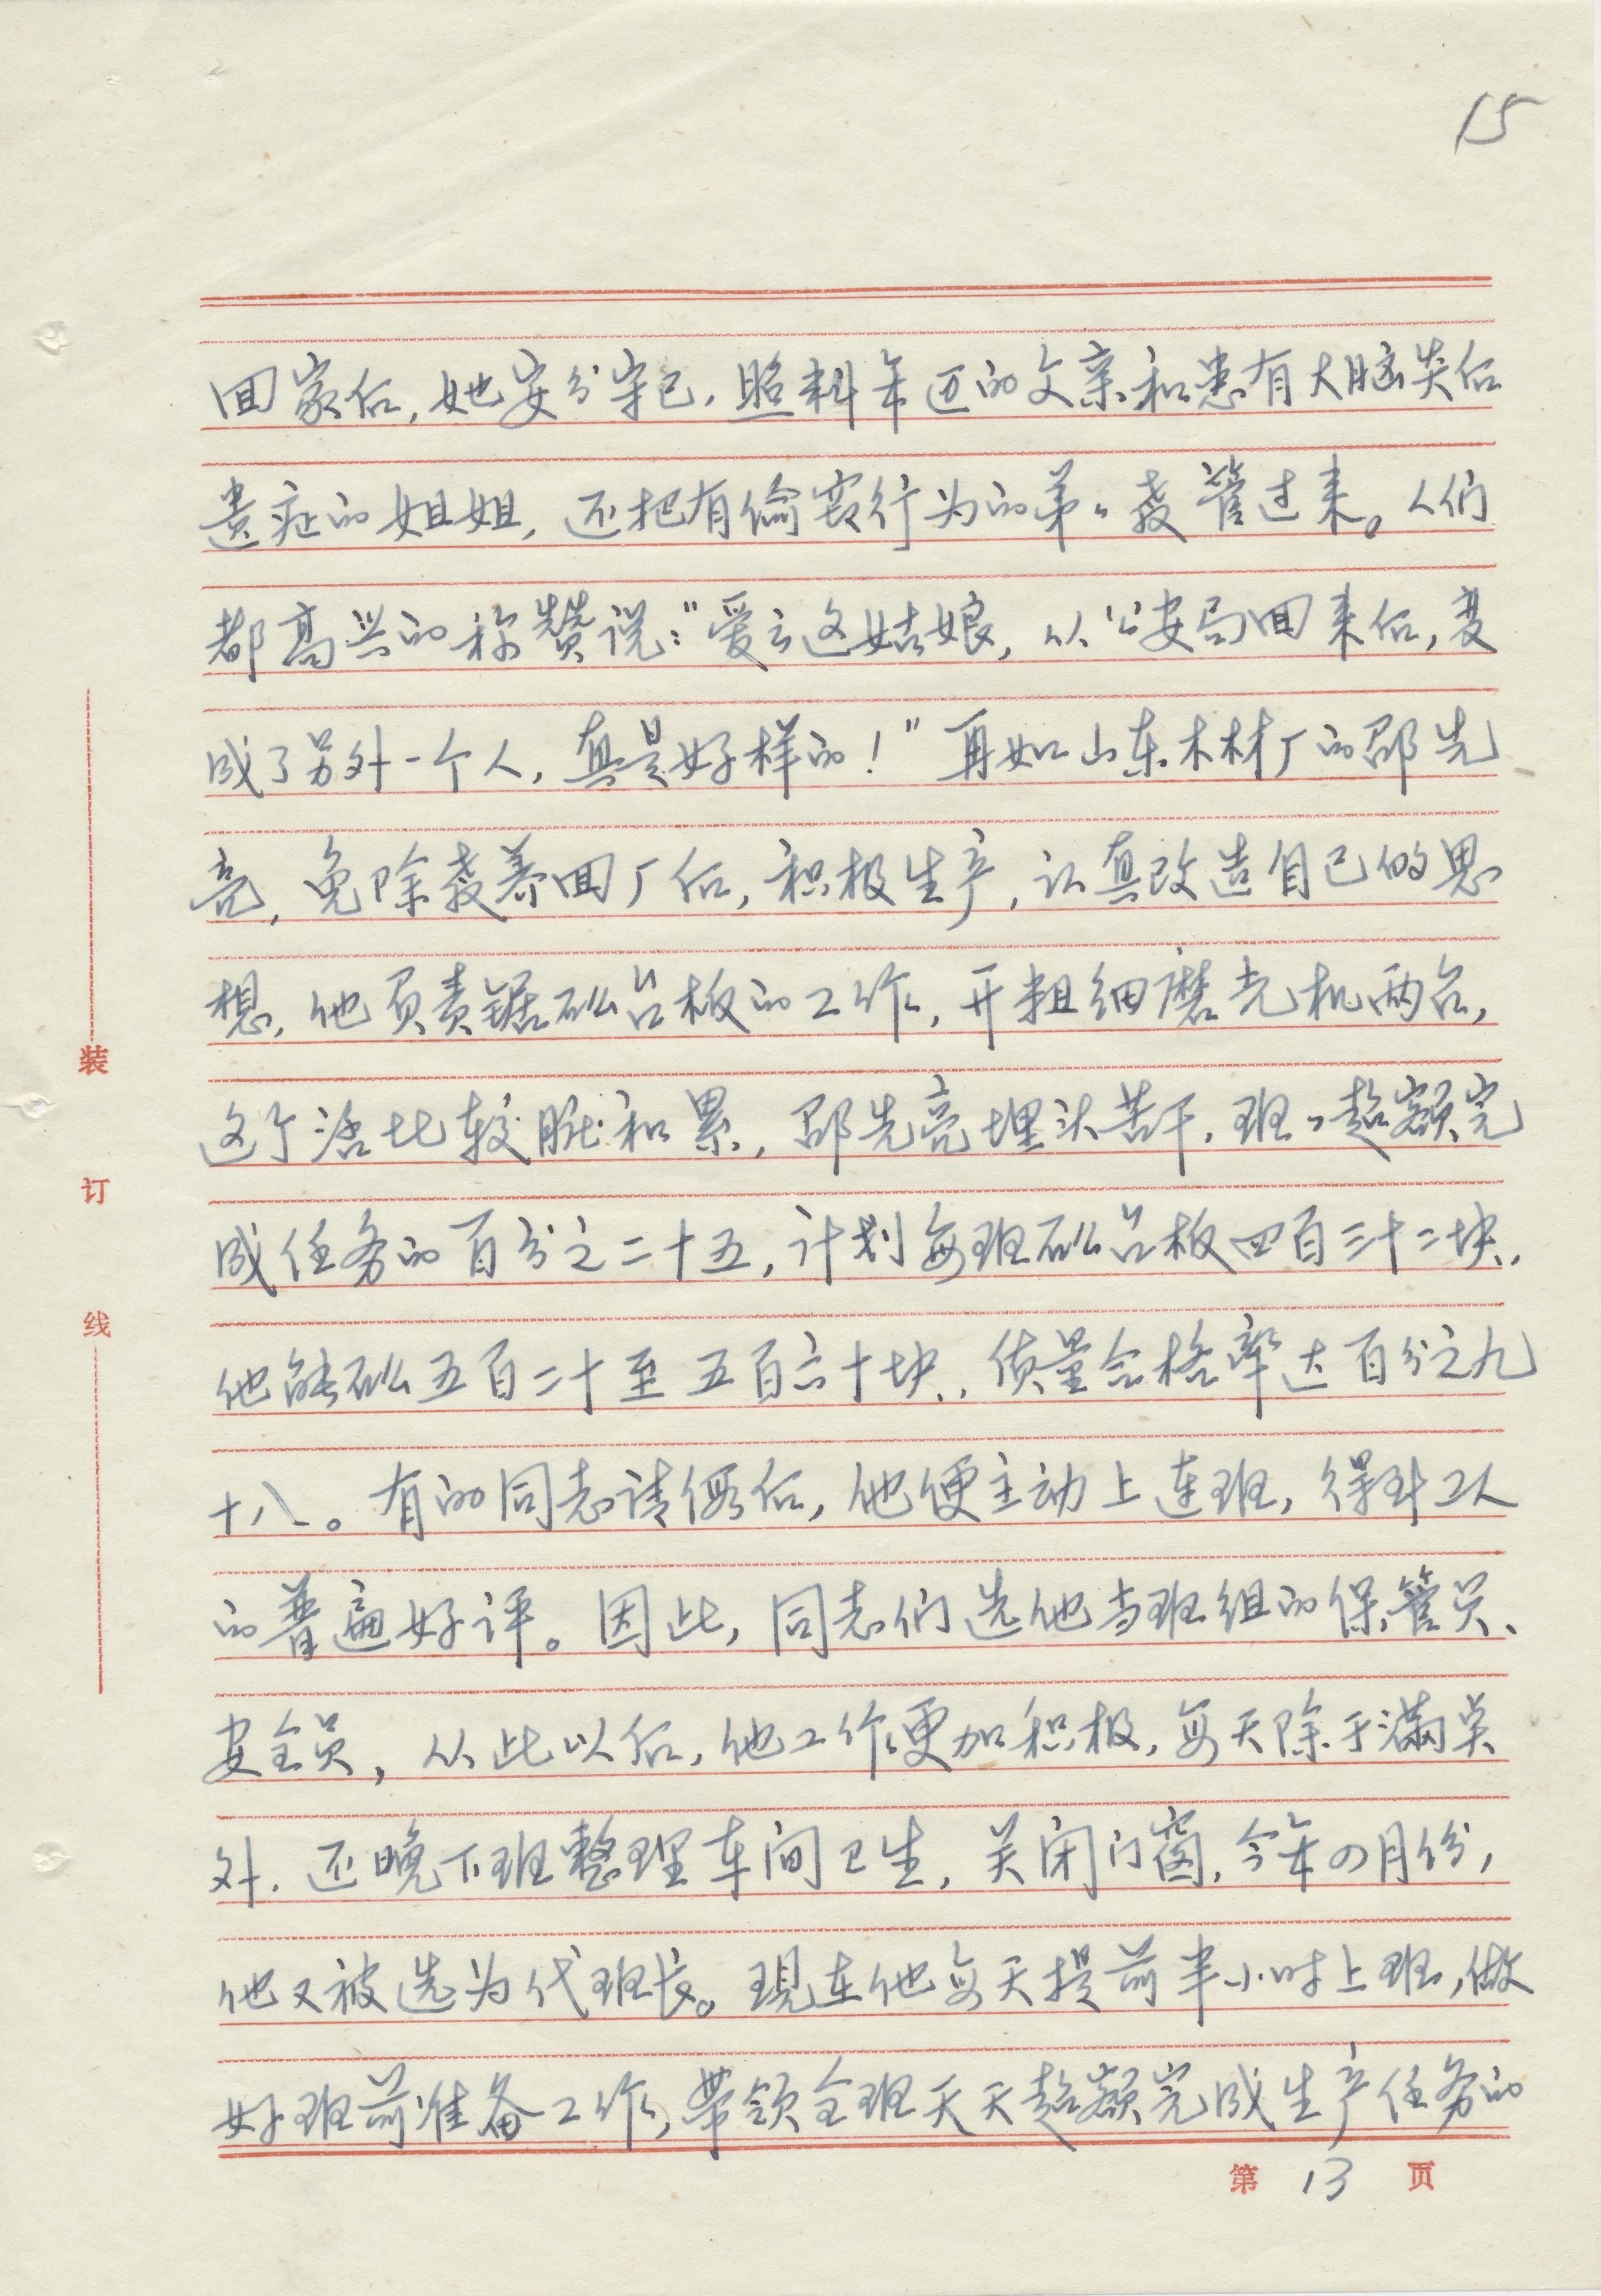 15
回家后，她安分守己，照料年迈的父亲和患有大脑炎后
遗症的姐姐，还把有偷窃行为的弟々教管过来。人们
都高兴的称赞说："爱云这姑娘，从公安局回来后，变
成了另外一个人，真是好样的！"再如山东木材厂的邵先
亮，免除教养回厂后，积极生产，认真改造自己的思
想，他负责锯砂台板的工作，开粗细磨光机两台，
这个活比较脏和累，邵先亮埋头苦干，班々超额完
成任务的百分之二十五，计划每班砂台板四百三十二块，
他能砂五百二十至五百六十块，质量合格率达百分之九
十八。有的同志请假后，他便主动上连班，得到工人
的普遍好评。因此，同志们选他当班组的保管员、
安全员，从此以后，他工作更加积极，每天除干满点
外，还晚下班整理车间卫生，关闭门窗，今年四月份，
他又被选为代班长。现在他每天提前半小时上班，做
好班前准备工作，带领全班天天超额完成生产任务的
第 13 页
装
订
线